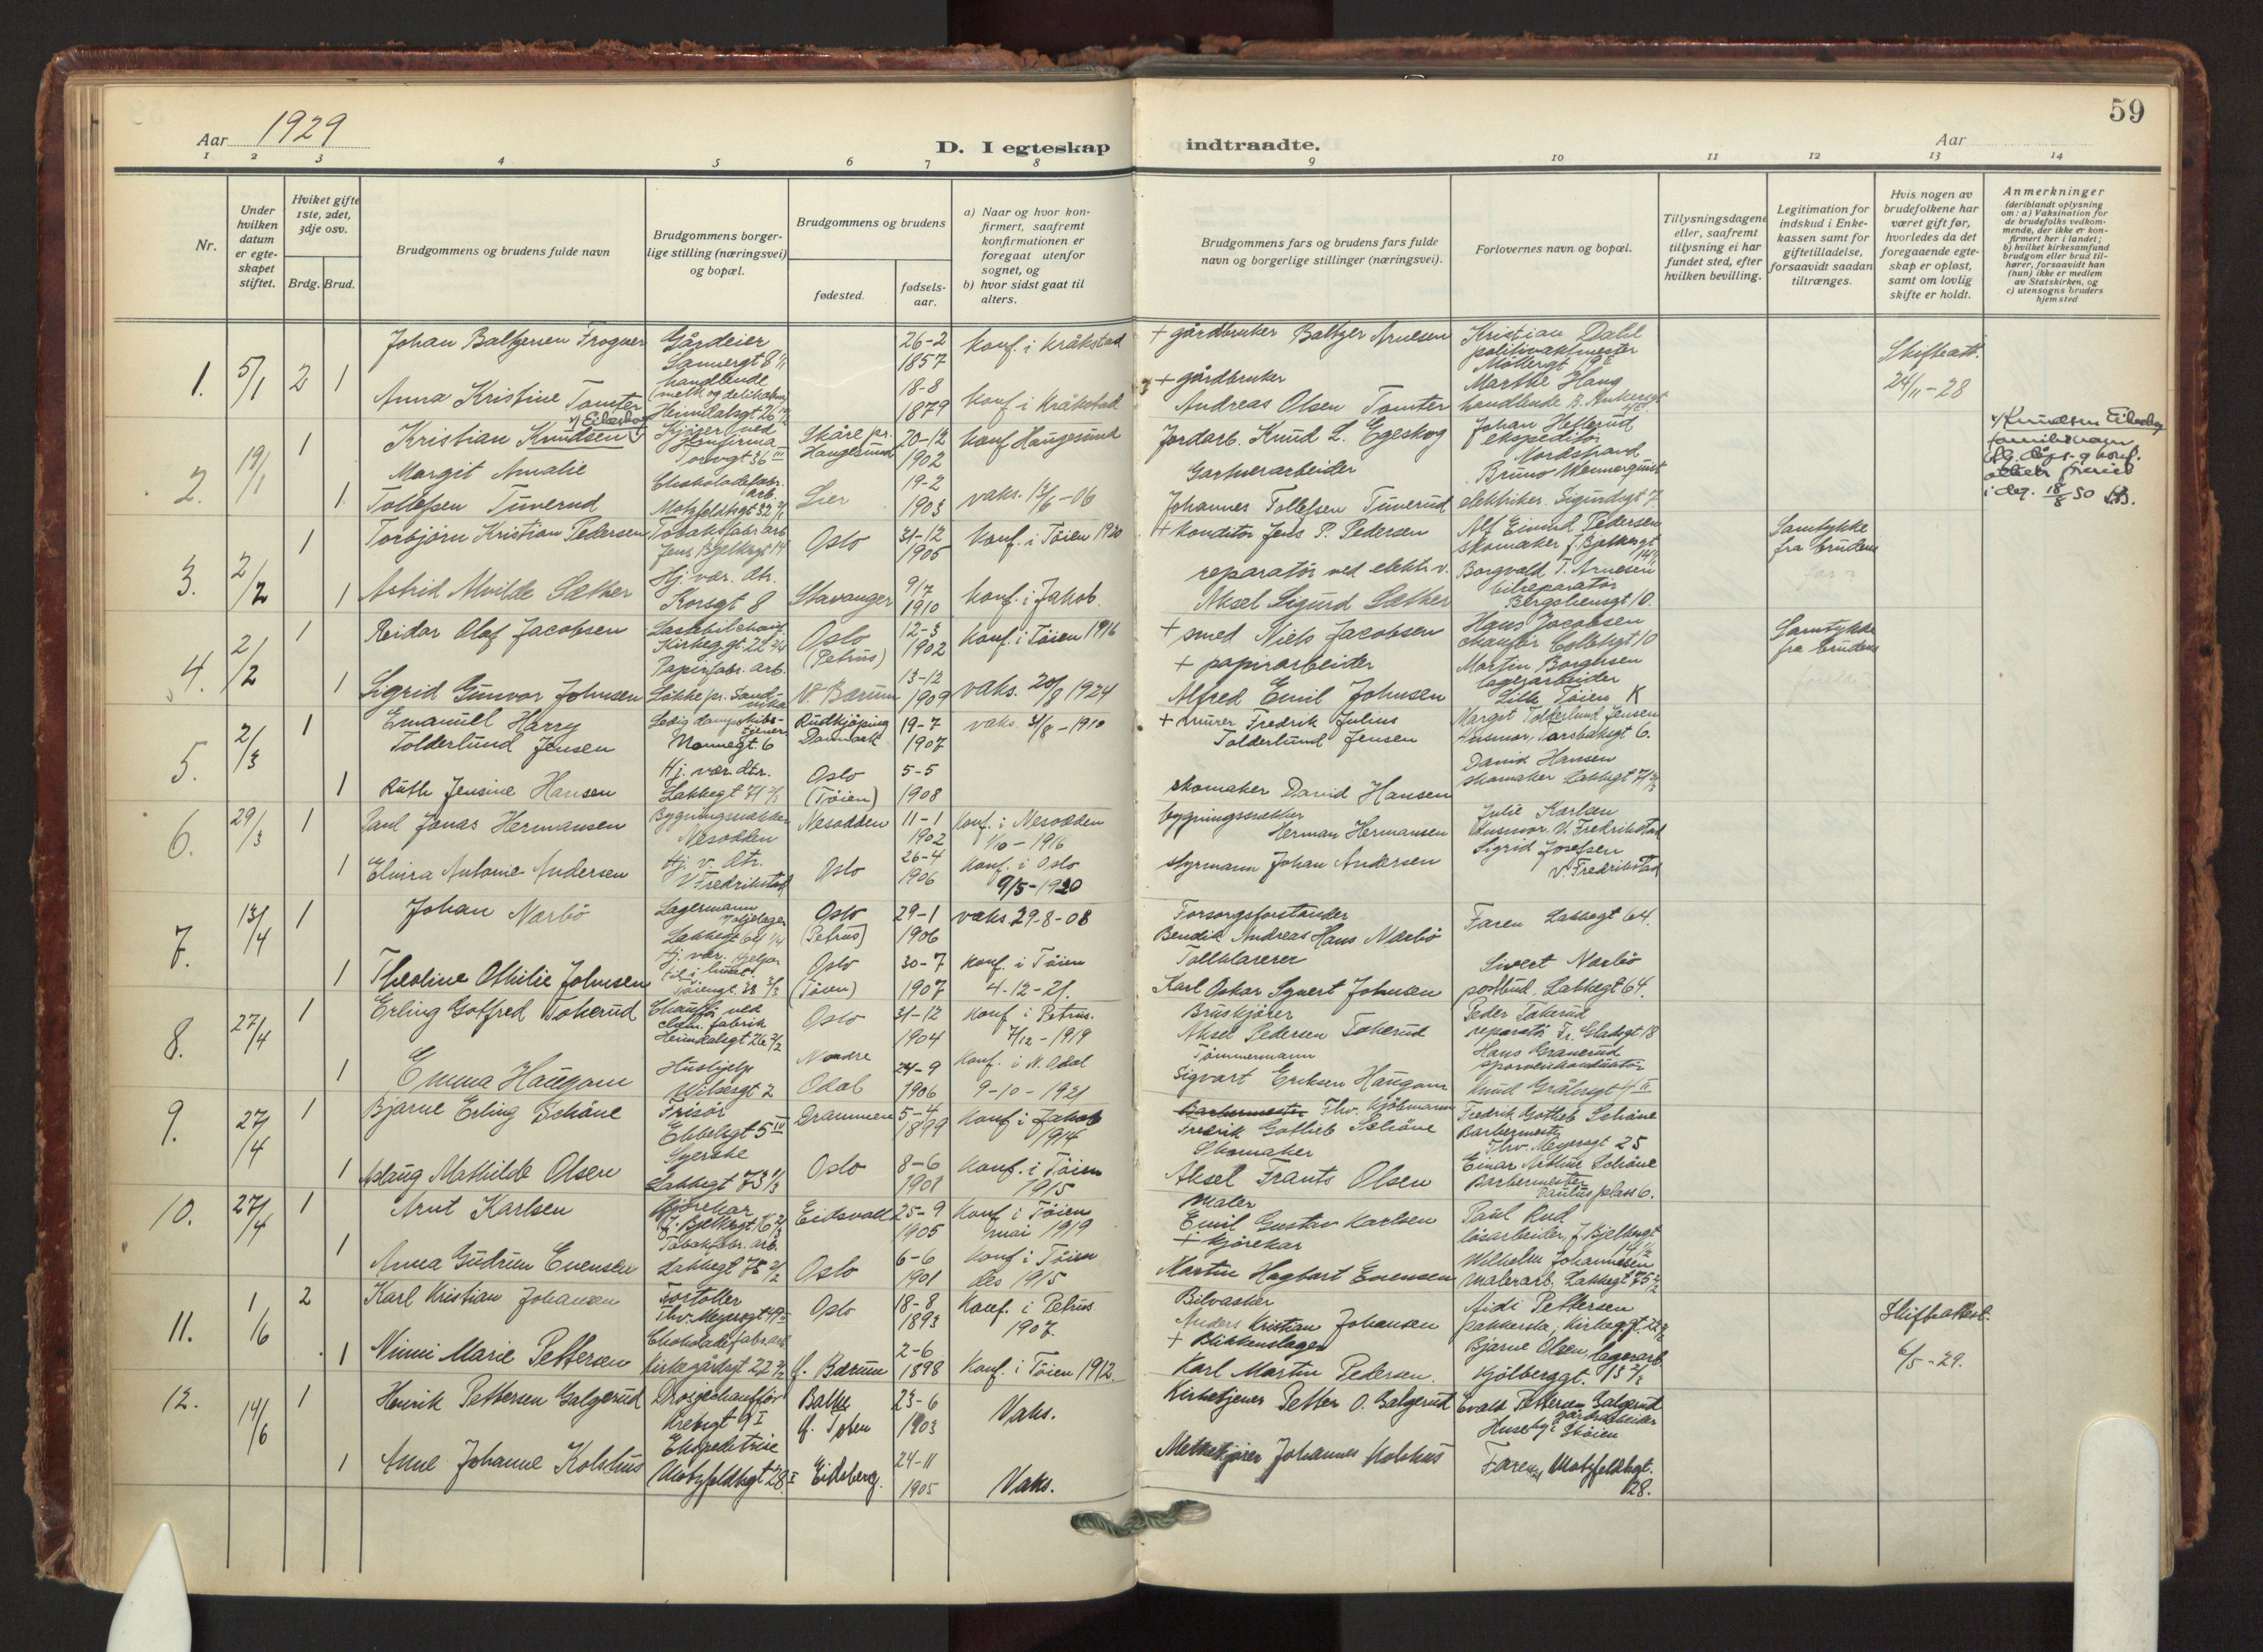 59
Aar 1929
D. I egteskap indtraadte.
Aar
1 2 3 4 5 6 7 8 9 10 11 12 13 14
Nr.
Under hvilken datum er egteskapet stiftet.
Hviket gifte 1ste, 2det, 3dje osv.
Brdg. Brud.
Brudgommens og brudens fulde navn
Brudgommens borgerlige stilling (næringsvei) og bopæl.
Brudgommens og brudens
fødested.
fødselsaar.
a) Naar og hvor konfirmert, saafremt konfirmationen er foregaat utenfor sognet, og
b) hvor sidst gaat til alters.
Brudgommens fars og brudens fars fulde navn og borgerlige stillinger (næringsvei).
Forlovernes navn og bopæl.
Tillysningsdagene eller, saafremt tillysning ei har fundet sted, efter hvilken bevilling.
Legitimation for indskud i Enkekassen samt for giftetilladelse, forsaavidt saadan tiltrænges.
Hvis nogen av brudefolkene har været gift før, hvorledes da det foregaaende egteskap er opløst, samt om lovlig skifte er holdt.
Anmerkninger (deriblandt oplysning om: a) Vaksination for de brudefolks vedkommende, der ikke er konfirmert her i landet; b) hvilket kirkesamfund brudgom eller brud tilhører, forsaavidt han (hun) ikke er medlem av Statskirken, og c) utensogns bruders hjemsted
1. 5/1 2 1
Johan Baltzersen Frogner
Gårdeier
26-2 1857
Konf. i Kråkstad
+ gårdbruker Baltzer Arnesen
Kristian Dahl
politivaktmester
Skifteatt. 24/11-28
Anna Kristine Tomter
handlende
Heimdalsgt 26
18-8 1879
Konf. i Kråkstad
+ gårdbruker
Andreas Olsen Tomter
Marthe Haug
handlende
2. 19/1 1
Kristian Knudsen
Torvgt 36 III
Skåre pr. Haugesund
20-12 1902
Konf Haugesund
Jordarb. Knud L. Egeskog
Johan Hetterud
ekspeditør
Nordstrand
1
Margit Amalie
Tollefsen Tuverud
Chokoladefabr. arb.
Motzfeldtsgt 32
Lier
19-2 1903
vaks. 13/6-06
Gartnerarbeider
Johannes Tollefsen Tuverud
Bruno Wennerquist
elektriker. Sigurdsgt 7.
3. 2/2 1
Torbjørn Kristian Pedersen
Tobaksfabr. arb
Jens Bjelkesgt 14
Oslo
31-12 1905
Konf. i Tøien 1920
+ konditor Jens P. Pedersen
Alf Emund Pedersen
skomaker J. Bjelkesgt
Samtykke fra brudens
1
Astrid Alvilde Sæther
Hj. vær. dtr.
Korsgt 8
Stavanger
9/7 1910
Konf. i Jakob.
reparatør ved elektr. v.
Aksel Sigurd Sæther
Borgvald T. Arnesen
bilreparatør
Bergsliensgt 10.
4. 2/2 1
Reidar Olaf Jacobsen
Lastebilchauf.
Kirkegt. 22
Oslo (Petrus)
12-3 1902
Konf. i Tøien 1916
+ smed Niels Jacobsen
Hans Jacobsen
chaufør
Samtykke fra brudens
1
Sigrid Gunvor Johnsen
Papirfabr. arb.
V. Bærum
13-12 1909
vaks. 20/8 1924
+ papirarbeider
Alfred Emil Johnsen
Martin Borgersen
lagerarbeider
Lille Tøien K
5. 2/3 1
Emanuel Harry
Tolderlund Jensen
Mannegt 6
Rudkjøping Danmark
19-7 1907
vaks. 31/8-1910
+ murer Fredrik Julius
Tolderlund Jensen
Margit Tolderlund Jensen
1
Ruth Jensine Hansen
Hj. vær. dtr.
Lakkegt 71 2/3
Oslo (Tøien)
5-5 1908
skomaker David Hansen
David Hansen
skomaker Lakkegt 71 2/3
6. 29/3 1
Paul Jonas Hermansen
Bygningssnekker
Nesodden
Nesodden
11-1 1902
Konf. i Nesodden
1/10-1916
bygningssnekker
Herman Hermansen
Julie Karlsen
Husmor. V. Fredrikstad
1
Elvira Antonie Andersen
Hj. v. dtr.
V. Fredrikstad
Oslo
26-4 1906
Konf. i Oslo
9/5-1920
styrmann Johan Andersen
Sigrid Josefsen
V. Fredrikstad
7. 13/4 1
Johan Narbö
Lagermann
Lakkegt 64
Oslo (Petrus)
29-1 1906
vaks 29-8-08
Forsorgsforstander
Bendik Andreas Hans Narbö
Faren Lakkegt 64.
1
Theoline Othilie Johnsen
Oslo (Tøien)
30-7 1907
Konf. i Tøien
4-12-21.
Tollklarerer
Karl Oskar Synert Johnsen
Sivert Narbö
postbud. Lakkegt 64.
8. 27/4 1
Erling Gotfred Tokerud
Chauffør ved
Heimdalsgt 26 2/2
Oslo
31-12 1904
Konf i Petrus.
7/12-1919
Bruskjører
Aksel Pedersen Tokerud
Peder Tokerud
reparatør Fr. Gladsgt 18
1
Emma Haugom
Hushjelp
Wibesgt 2
Nordre Odal
24-9 1906
Konf. i N. Odal
9-10-1921
Tømmermann
Sigvart Eriksen Haugom
Hans Granerud
sporveiskonduktør
9. 27/4 1
Bjarne Erling Schöne
Frisør
Ebbelsgt 5 IV
Drammen
5-4 1899
Konf i Jakob
1914
Barbermester Thv. Kjøbmann
Fredrik Gotlieb Schöne
Fredrik Gotlieb Schöne
Barbermester
Thv. Meyersgt 25
1
Aslaug Mathilde Olsen
Syerske
Lakkegt 73 1/3
Oslo
8-6 1901
Konf. i Tøien
1915
Skomaker
Aksel Frants Olsen
Einar Arthur Schöne
Barbermester
Paulus plass 6.
10. 27/4 1
Arnt Karlsen
Kjørekar
J. Bjelkesgt 16
Eidsvold
25-9 1905
Konf i Tøien
mai 1919
Maler
Emil Gustav Karlsen
Paul Rud
løsarbeider, J. Bjelkesgt
1
Anna Gudrun Evensen
Tobakfabr. arb.
Lakkegt 75 2/2
Oslo
6-6 1901
Konf i Tøien
des 1915
+ kjørekar
Martin Hagbart Evensen
Wilhelm Johannesen
malerarb. Lakkegt 75 2/2
11. 1/6 2
Karl Kristian Johansen
Fortoller
Oslo
18-8 1893
Konf. i Petrus
1907.
Bilvasker
Anders Kristian Johansen
Aidi Pettersen
Skifteattest. 6/5-29.
1
Ninni Marie Pettersen
Chokoladefabr. arb
Kirkegårdsgt 22 2/2
f. Bærum
2-6 1898
Konf. i Tøien 1912.
+ Blikkenslager
Karl Martin Pedersen.
Bjarne Olsen, lagerarb.
Kjølberggt.
12. 14/6 1
Henrik Pettersen Galgerud
Drosjechauffør
23-6 1903
Vaks.
Kirketjener Petter O. Galgerud
Evald Pettersen Galgerud
gårdsarbeider
1
Anne Johanne Kolshus
Ekspeditrise
Motzfeldtsgt 28 I
Eidsberg.
24-11 1905
Vaks.
Melkekjører Johannes Kolshus
Faren, Motzfeldtsgt. 28.